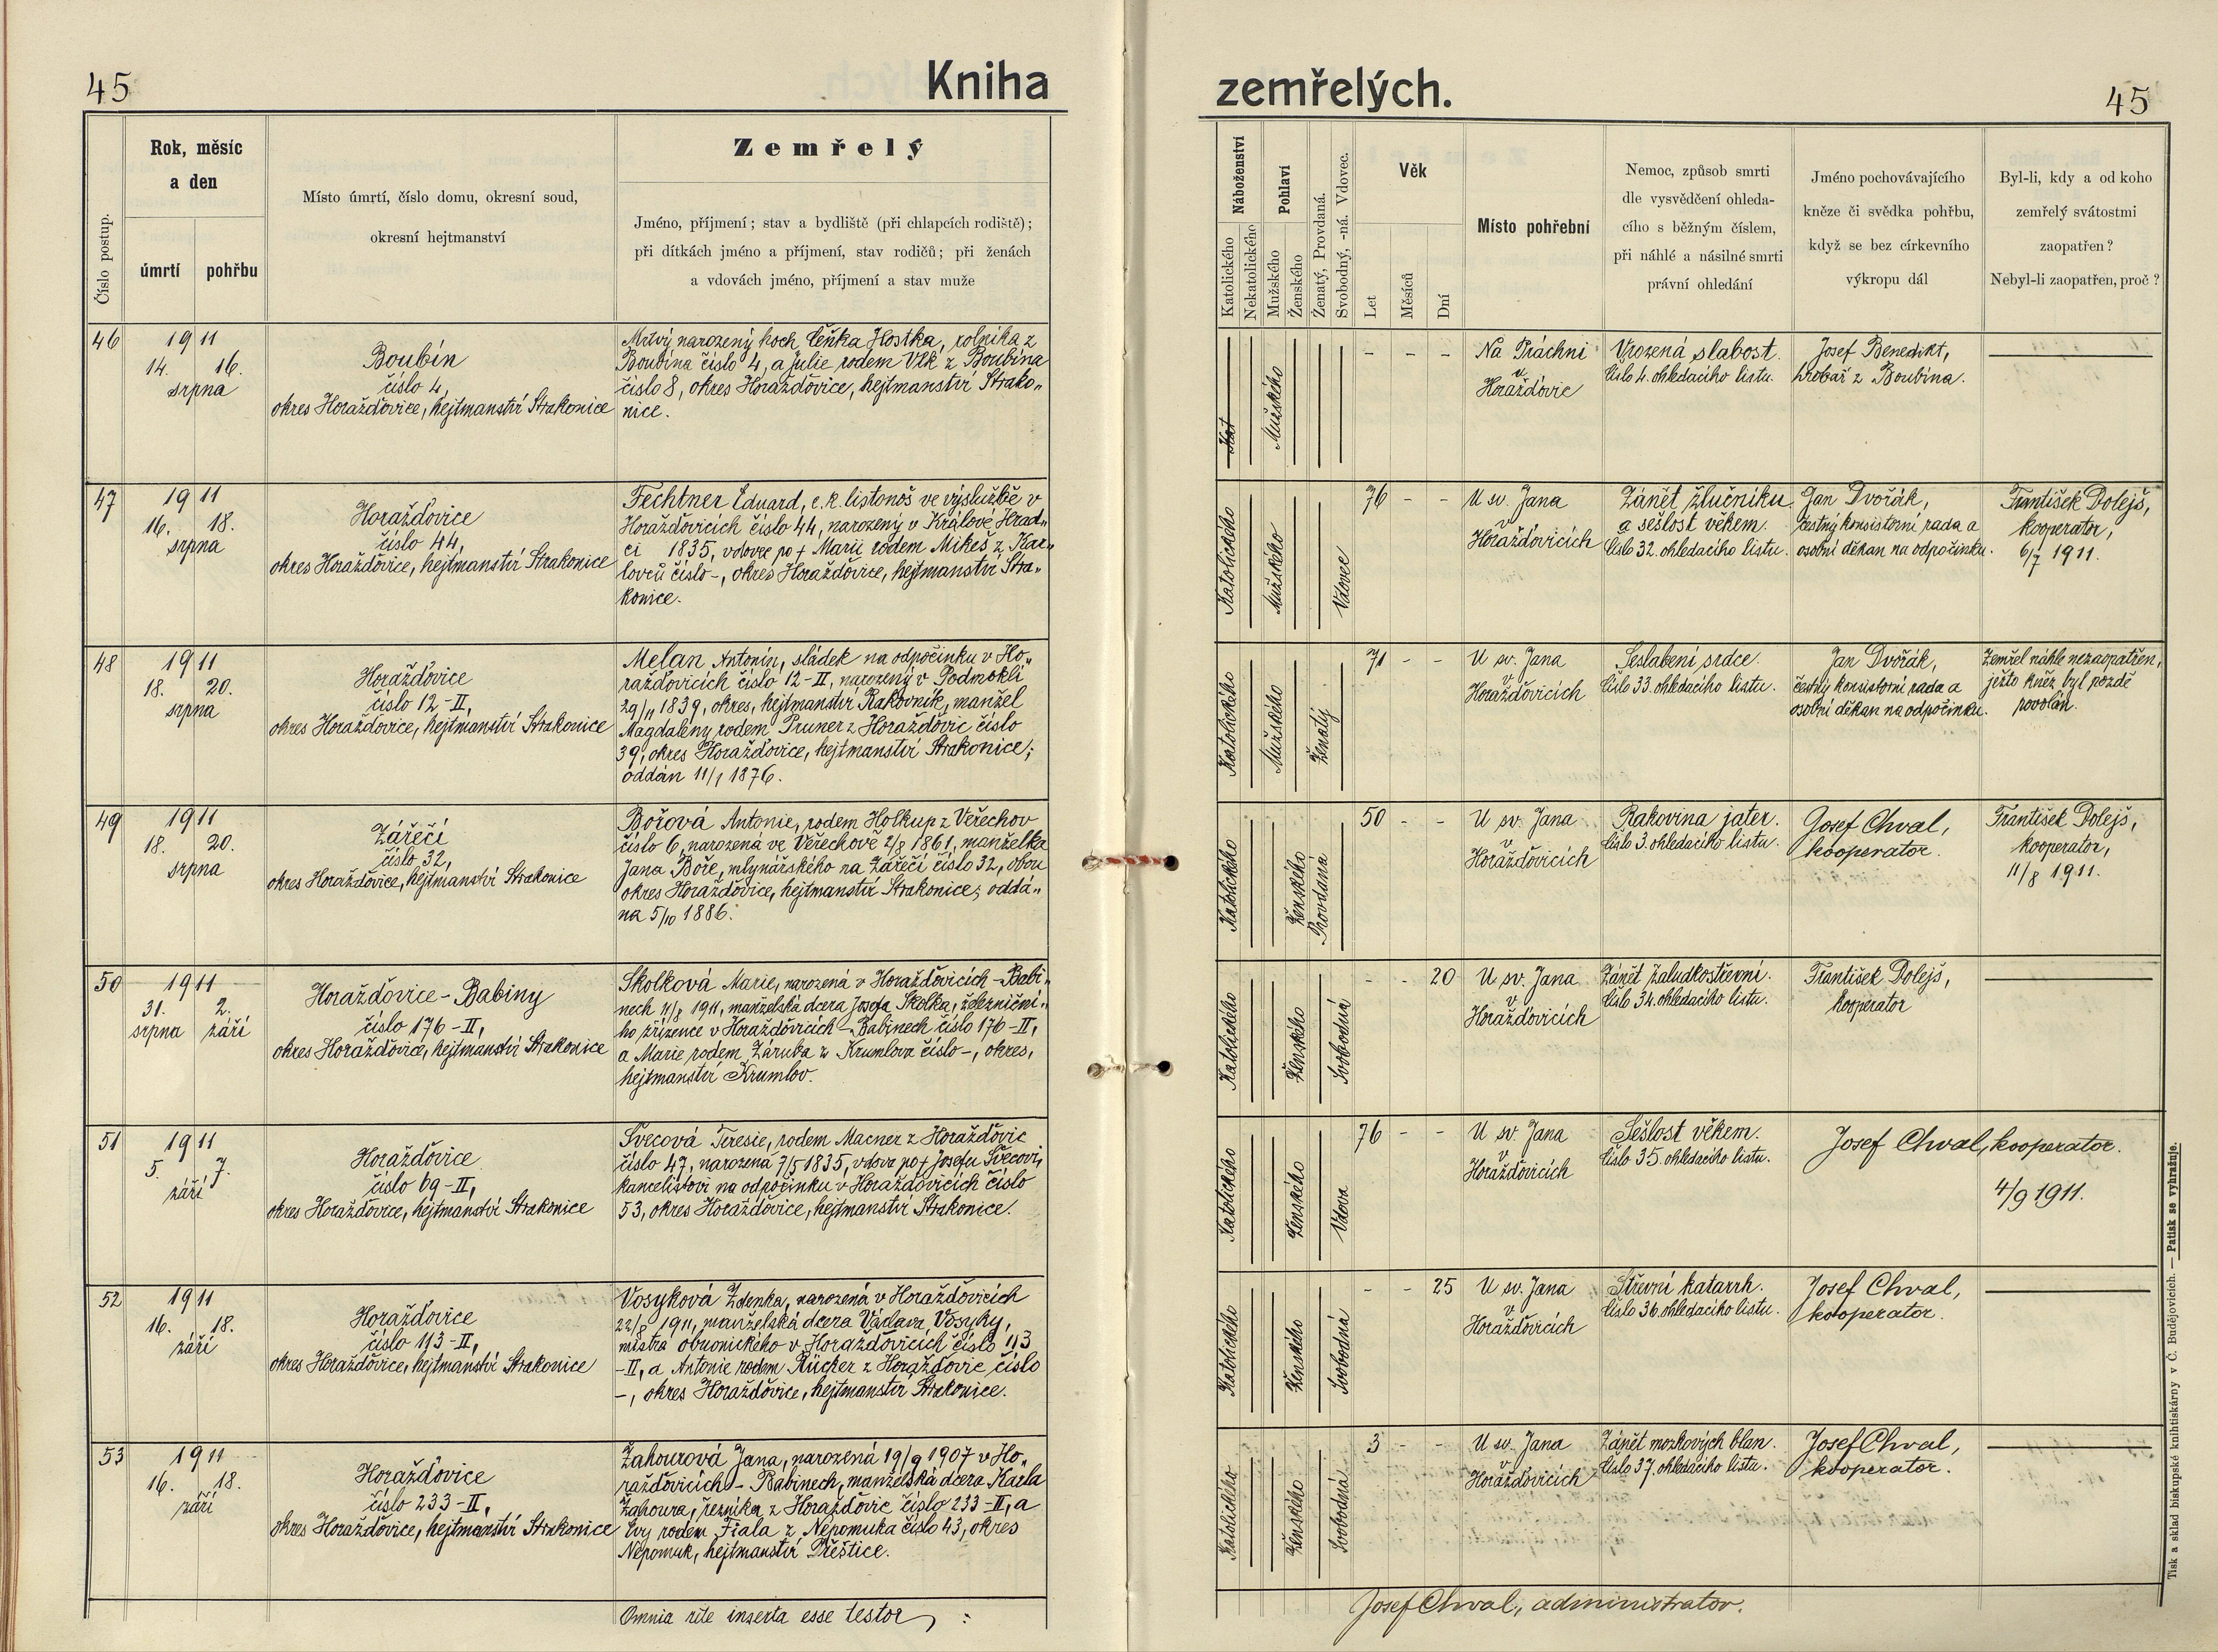 45
Kniha
zemřelých.
45
Číslo postup.
Rok, měsíc
a den
úmrtí
pohřbu
Místo úmrtí, číslo domu, okresní soud,
okresní hejtmanství
Zemřelý
Jméno, příjmení; stav a bydliště (při chlapcích rodiště);
při dítkách jméno a příjmení, stav rodičů; při ženách
a vdovách jméno, příjmení a stav muže
Náboženství
Katolického
Nekatolického
Pohlaví
Mužského
Ženského
Ženatý, Provdaná.
Svobodný, -ná. Vdovec.
Věk
Let
Měsíců
Dní
Místo pohřební
Nemoc, způsob smrti
dle vysvědčení ohleda-
cího s běžným číslem,
při náhlé a násilné smrti
právní ohledání
Jméno pochovávajícího
kněze či svědka pohřbu,
když se bez církevního
výkropu dál
Byl-li, kdy a od koho
zemřelý svátostmi
zaopatřen?
Nebyl-li zaopatřen, proč?
46
1911
14. 16.
srpna
Boubín
číslo 4,
okres Horažďovice, hejtmanství Strakonice
Mrtvý narozený hoch Čeňka Hostka, rolníka z
Boubína číslo 4, a Julie rodem Vlk z Boubína
číslo 8, okres Horažďovice, hejtmanství Strako„
nice.
Kat
Mužského
- - -
Na Práchni
u
Horažďovic
Vrozená slabost.
Číslo 4. ohledacího listu.
Josef Benedikt,
hrobař z Boubína.
47
1911
16. 18.
srpna
Horažďovice
číslo 44,
okres Horažďovice, hejtmanství Strakonice
Fechtner Eduard, c.k. listonoš ve výslužbě v
Horažďovicích číslo 44, narozený v Králové Hrad„
ci 1835, vdovec po † Marii rodem Mikeš z Kar„
lovců číslo -, okres Horažďovice, hejtmanství Stra„
konice.
Katolického
Mužského
Vdovec
76 - -
U sv. Jana
v
Horažďovicích
Zánět žlučníku
a sešlost věkem.
Číslo 32. ohledacího listu.
Jan Dvořák,
čestný konsistorní rada a
osobní děkan na odpočinku.
František Dolejš,
kooperator,
6/7 1911.
48
1911
18. 20.
srpna
Horažďovice
číslo 12-II,
okres Horažďovice, hejtmanství Strakonice
Melan Antonín, sládek na odpočinku v Ho„
ražďovicích číslo 12-II, narozený v Podmokli
29/11 1839, okres, hejtmanství Rakovník, manžel
Magdaleny rodem Pruner z Horažďovic číslo
39, okres Horažďovice, hejtmanství Strakonice;
oddán 11/1 1876.
Katolického
Mužského
Ženatý
71 - -
U sv. Jana
v
Horažďovicích
Seslabení srdce.
Číslo 33. ohledacího listu.
Jan Dvořák,
čestný konsistorní rada a
osobní děkan na odpočinku.
Zemřel náhle nezaopatřen,
ježto kněz byl pozdě
povolán.
49
1911
18. 20.
srpna
Zářečí
číslo 32,
okres Horažďovice, hejtmanství Strakonice
Bořová Antonie, rodem Holkup z Věřechov
číslo 6, narozená ve Věřechově 2/8 1861, manželka
Jana Boře, mlynářského na Zářečí číslo 32, obou
okres Horažďovice, hejtmanství Strakonice; oddá„
na 5/10 1886.
Katolického
Ženského
Provdaná
50 - -
U sv. Jana
v
Horažďovicích
Rakovina jater.
Číslo 3. ohledacího listu.
Josef Chval,
kooperator.
František Dolejš,
kooperator,
11/8 1911.
50
1911
31. 2.
srpna září
Horažďovice-Babiny
číslo 176-II,
okres Horažďovice, hejtmanství Strakonice
Skolková Marie, narozená v Horažďovicích-Babi„
nech 11/8 1911, manželská dcera Josefa Skolka, železniční„
ho zřízence v Horažďovicích-Babinech číslo 176-II,
a Marie rodem Záruba z Krumlova číslo -, okres,
hejtmanství Krumlov.
Katolického
Ženského
Svobodná
- - 20
U sv. Jana
v
Horažďovicích
Zánět žaludkostřevní.
Číslo 34. ohledacího listu.
František Dolejš,
kooperator
51
1911
5. 7.
září
Horažďovice
číslo 69-II,
okres Horažďovice, hejtmanství Strakonice
Švecová Teresie, rodem Macner z Horažďovic
číslo 47, narozená 7/5 1835, vdova po † Josefu Švecovi,
kancelistovi na odpočinku v Horažďovicích číslo
53, okres Horažďovice, hejtmanství Strakonice.
Katolického
Ženského
Vdova
76 - -
U sv. Jana
v
Horažďovicích
Sešlost věkem.
Číslo 35. ohledacího listu.
Josef Chval, kooperator.
4/9 1911.
52
1911
16. 18.
září
Horažďovice
číslo 113-II,
okres Horažďovice, hejtmanství Strakonice
Vosyková Zdenka, narozená v Horažďovicích
22/8 1911, manželská dcera Václava Vosyky,
mistra obuvnického v Horažďovicích číslo 113
-II, a Antonie rodem Rücker z Horažďovic číslo
-, okres Horažďovice, hejtmanství Strakonice.
Katolického
Ženského
Svobodná
- - 25
U sv. Jana
v
Horažďovicích
Střevní katarrh.
Číslo 36. ohledacího listu.
Josef Chval,
kooperator.
53
1911
16. 18.
září
Horažďovice
číslo 233-II,
okres Horažďovice, hejtmanství Strakonice
Žahourová Jana, narozená 19/9 1907 v Ho„
ražďovicích-Babinech, manželská dcera Karla
Žahoura, řezníka z Horažďovic číslo 233-II, a
Evy rodem Fiala z Nepomuka číslo 43, okres
Nepomuk, hejtmanství Přeštice.
Katolického
Ženského
Svobodná
3 - -
U sv. Jana
v
Horažďovicích
Zánět mozkových blan.
Číslo 37. ohledacího listu.
Josef Chval,
kooperator.
Omnia rite inserta esse testor :
Josef Chval, administrator.
Tisk a sklad biskupské knihtiskárny v Č. Budějovicích. — Patisk se vyhražuje.